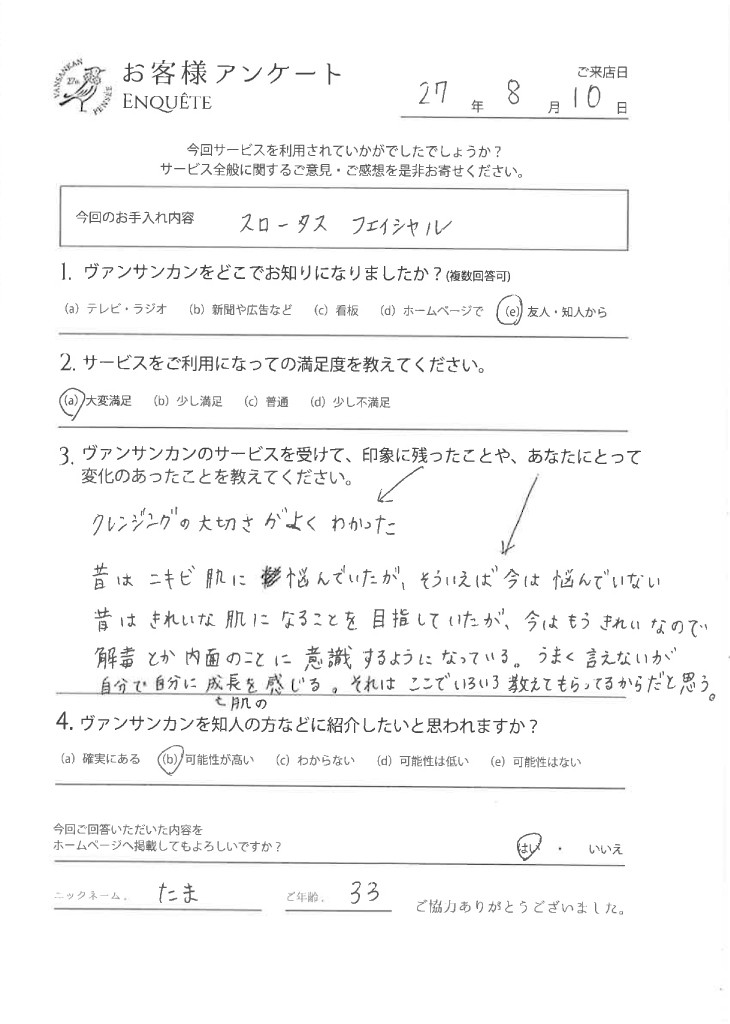 VANSANKAN PENSÉE
お客様アンケート
ENQUÊTE
ご来店日
27年8月10日
今回サービスを利用されていかがでしたでしょうか？
サービス全般に関するご意見・ご感想を是非お寄せください。
今回のお手入れ内容 スロータス フェイシャル
1. ヴァンサンカンをどこでお知りになりましたか？(複数回答可)
(a) テレビ・ラジオ (b) 新聞や広告など (c) 看板 (d) ホームページで (e) 友人・知人から
2. サービスをご利用になっての満足度を教えてください。
(a) 大変満足 (b) 少し満足 (c) 普通 (d) 少し不満足
3. ヴァンサンカンのサービスを受けて、印象に残ったことや、あなたにとって
変化のあったことを教えてください。
クレンジングの大切さがよくわかった
昔はニキビ肌に悩んでいたが、そういえば今は悩んでいない
昔はきれいな肌になることを目指していたが、今はもうきれいなので
解毒とか内面のことに意識するようになっている。うまく言えないが
自分で自分に成長を感じる。それはここでいろいろ教えてもらってるからだと思う。
肌の
4. ヴァンサンカンを知人の方などに紹介したいと思われますか？
(a) 確実にある (b) 可能性が高い (c) わからない (d) 可能性は低い (e) 可能性はない
今回ご回答いただいた内容を
ホームページへ掲載してもよろしいですか？
はい ・ いいえ
ニックネーム. たま ご年齢. 33 ご協力ありがとうございました。